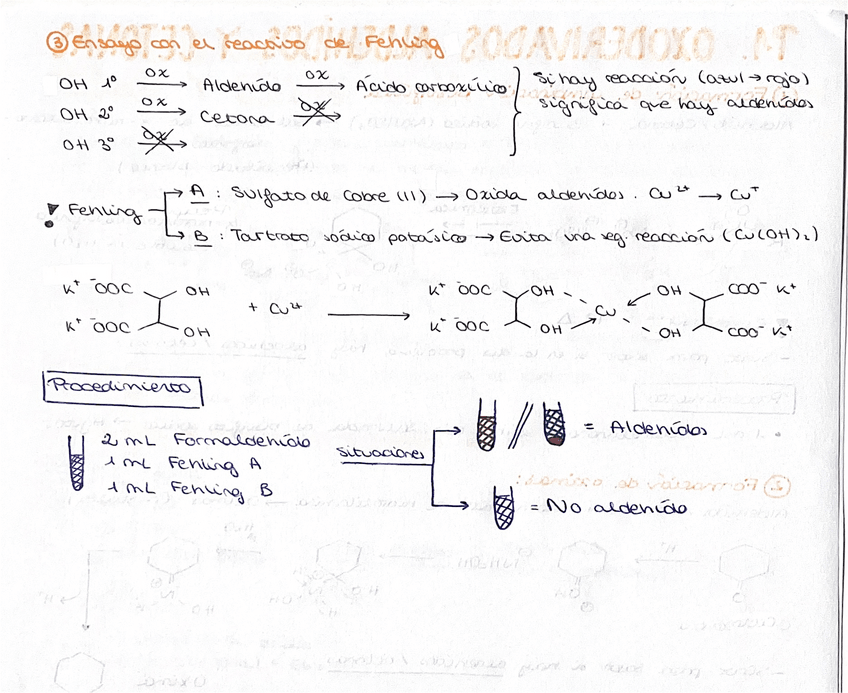 ③ Ensayo con el reactivo de Fehling
OH 1º ox → Aldehído ox → Ácido carboxílico
OH 2º ox → Cetona ox →
OH 3º ox →
Si hay reacción (azul → rojo)
significa que hay aldehídos
! Fehling
A : Sulfato de Cobre (II) → Oxida aldehídos. Cu²⁺ → Cu⁺
B : Tartrato sódico potásico → Evita una seg. reacción (Cu(OH)₂)
K⁺ ⁻OOC OH
K⁺ ⁻OOC OH
+ Cu²⁺ →
K⁺ ⁻OOC OH Cu OH COO⁻ K⁺
K⁺ ⁻OOC OH OH COO⁻ K⁺
Procedimiento
2 mL Formaldehído
1 mL Fehling A
1 mL Fehling B
Situaciones
// = Aldehídos
= No aldehído